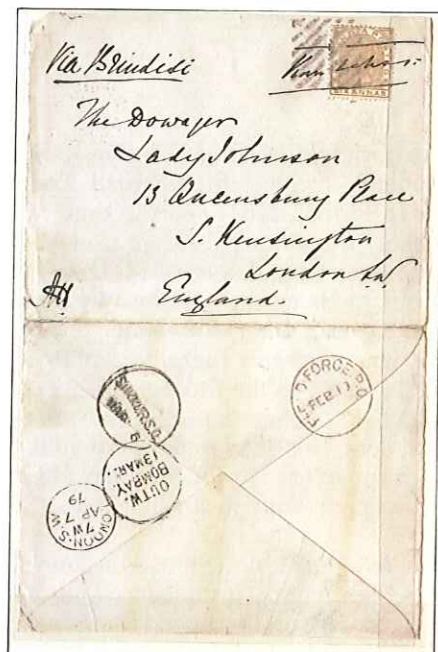 Via Brindisi
SIX ANNAS
The Dowager
Lady Johnson
13 Queensbury Place
S. Kensington
London S.W.
England.
AH
SUKKUR.S.C.
MAR. 6
FIELD FORCE P.O.
FEB. 17
OUTW.
BOMBAY.
13 MAR.
LONDON.S.W.
7 W
AP 7
79